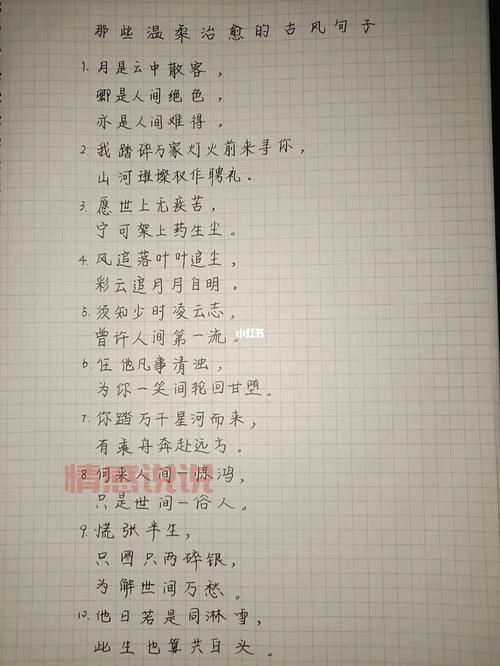 那些温柔治愈的古风句子
1. 月是云中散客，
卿是人间绝色，
亦是人间难得。
2. 我踏碎万家灯火前来寻你，
山河璀璨权作聘礼。
3. 愿世上无疾苦，
宁可架上药生尘。
4. 风追落叶叶追尘，
彩云追月月自明。
5. 须知少时凌云志，
曾许人间第一流。
小红书
6. 任他凡事清浊，
为你一笑间轮回甘堕。
7. 你踏万千星河而来，
有乘舟奔赴远方。
情感说说
8. 何来人间一惊鸿，
只是世间一俗人。
9. 慌张半生，
只图只两碎银，
为解世间万愁。
10. 他日若是同淋雪，
此生也算共白头。